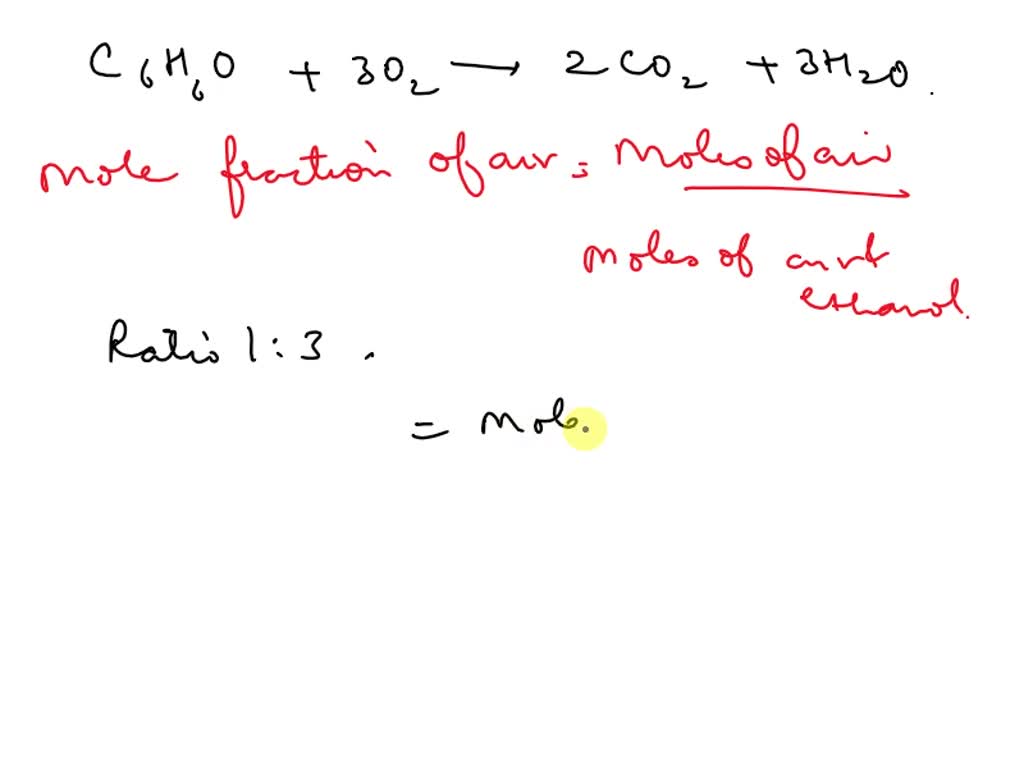 C₆H₆O + 3O₂ → 2CO₂ + 3H₂O.
mole fraction of air = Moles of air
moles of air + ethanol.
Ratio 1:3 .
= mole